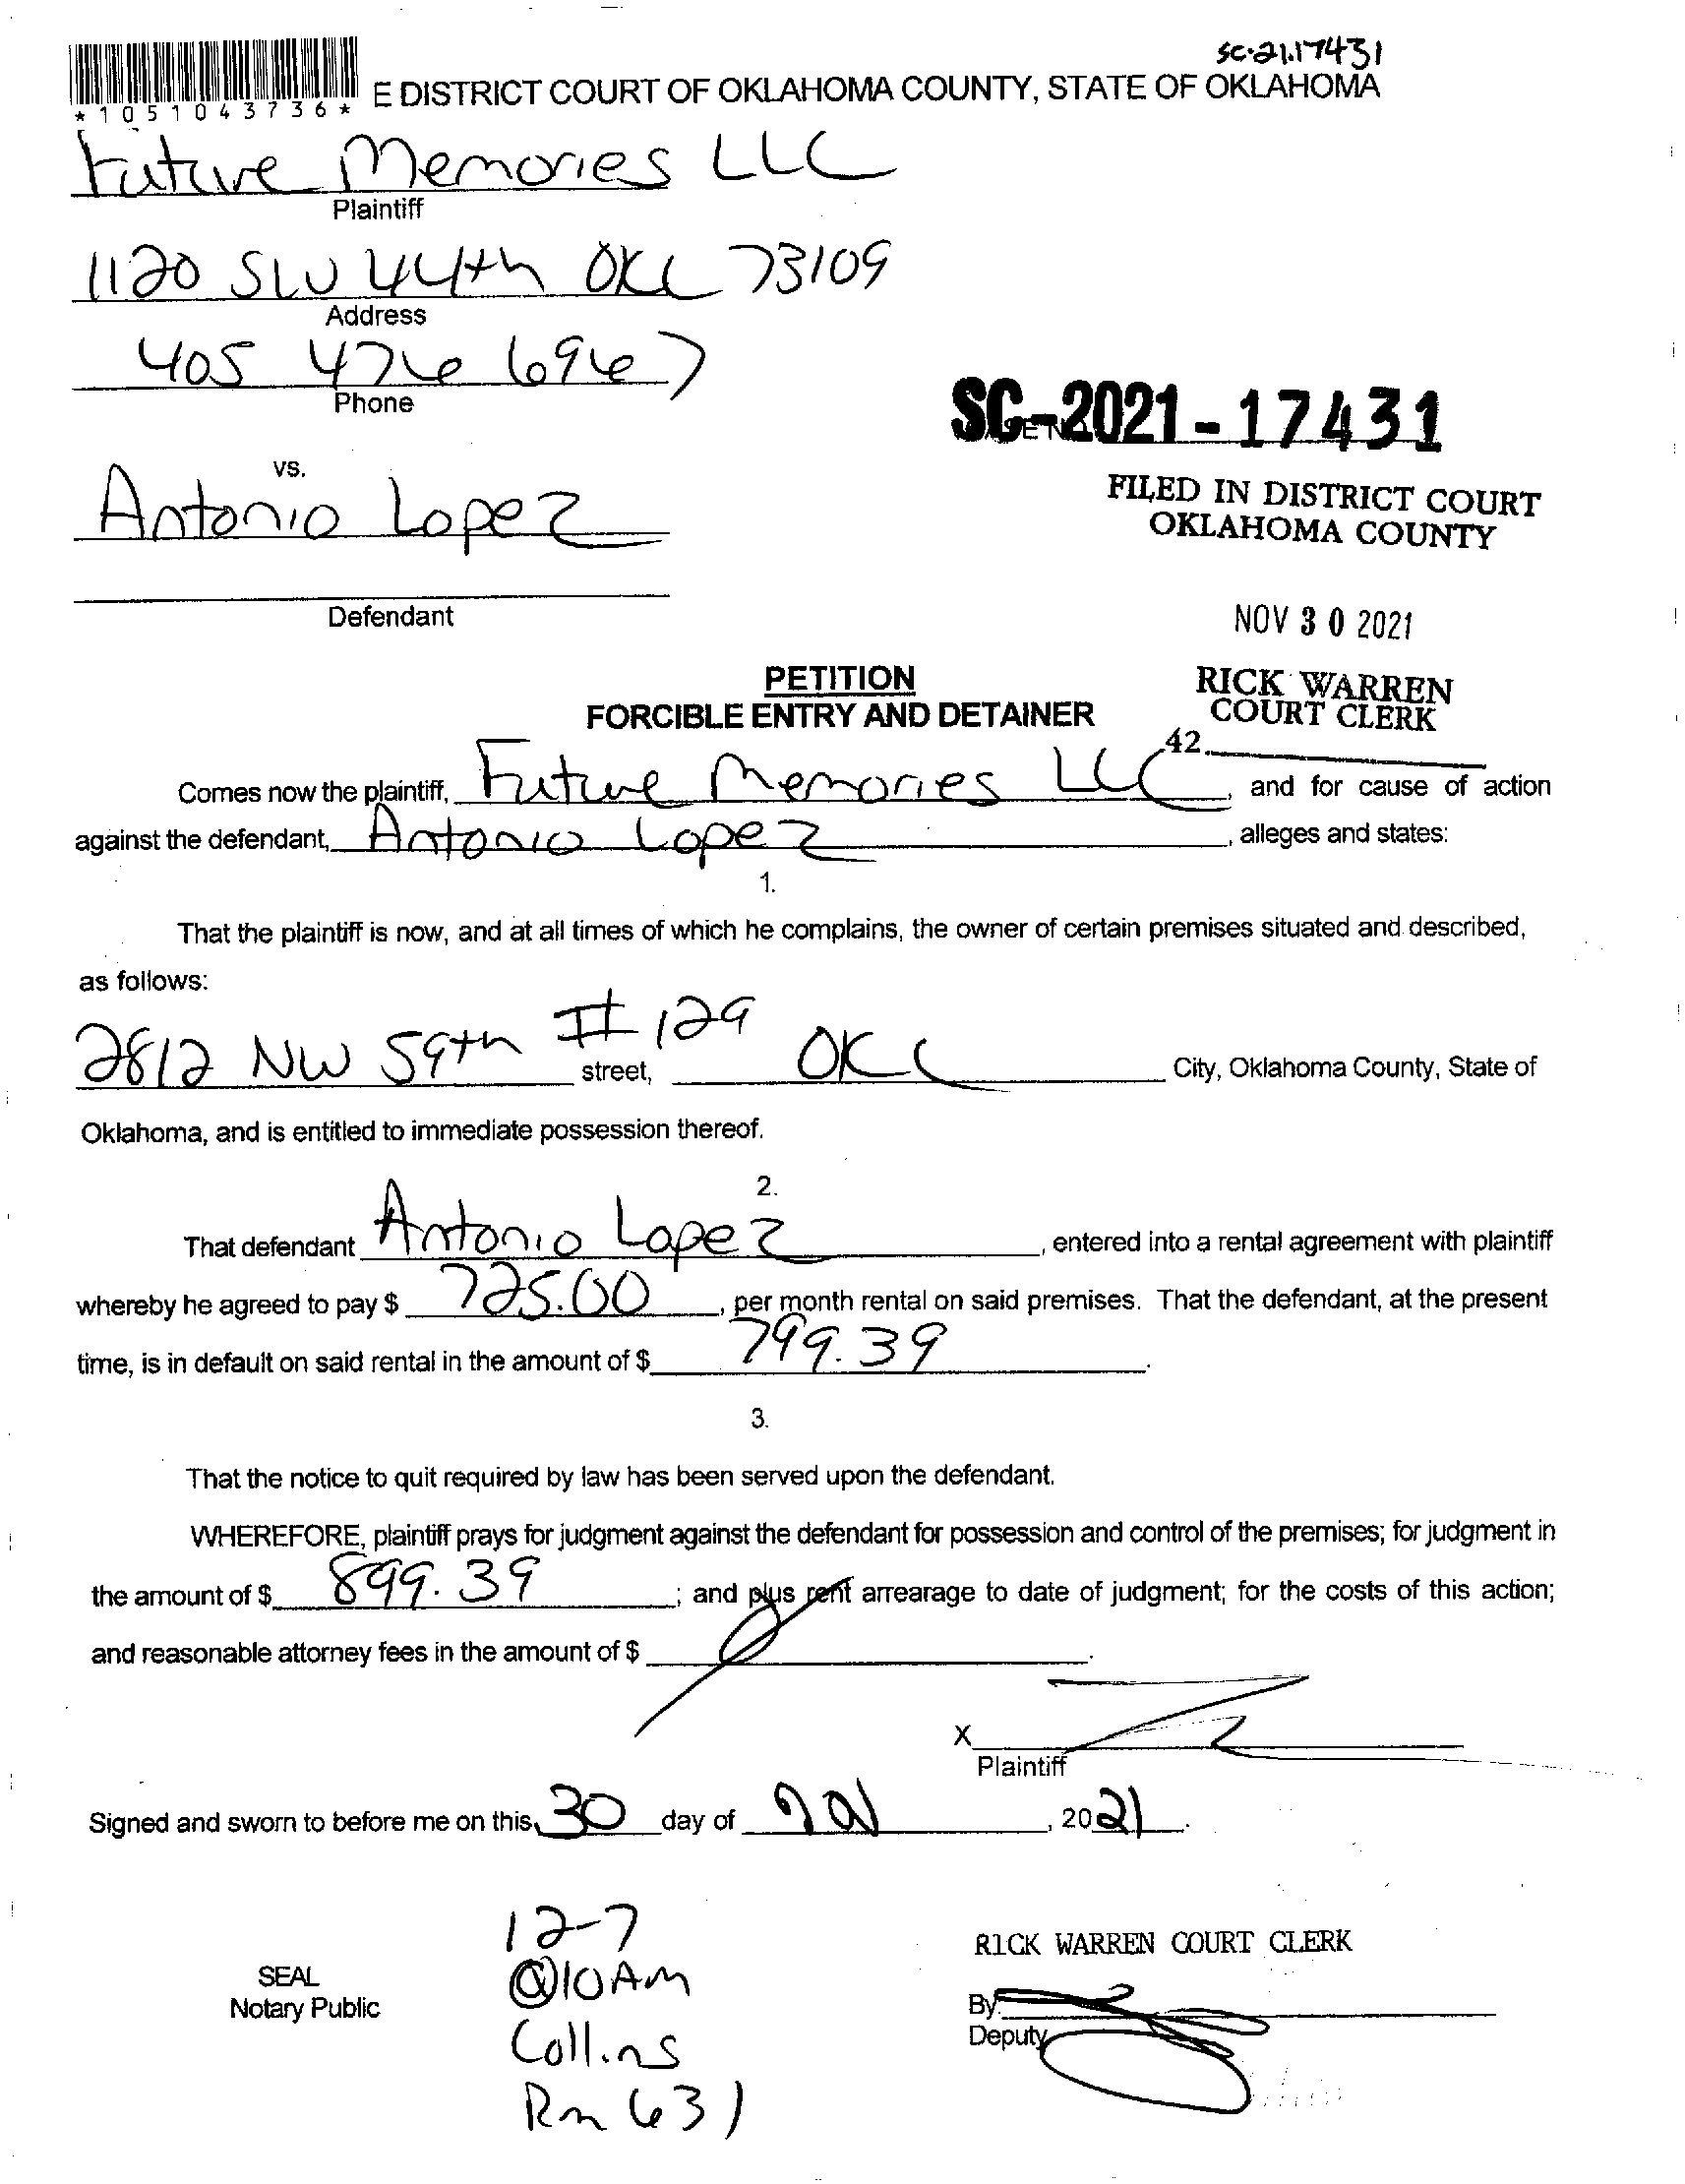 SC-21-17431
*1051043736* E DISTRICT COURT OF OKLAHOMA COUNTY, STATE OF OKLAHOMA
Future Memories LLC
Plaintiff
1120 SW 44th OKC 73109
Address
405 476 6967
Phone
SC-2021-17431
vs.
Antonio Lopez
FILED IN DISTRICT COURT
OKLAHOMA COUNTY
Defendant
NOV 30 2021
PETITION
FORCIBLE ENTRY AND DETAINER
RICK WARREN
COURT CLERK
42
Comes now the plaintiff, Future Memories LLC, and for cause of action
against the defendant, Antonio Lopez, alleges and states:
1.
That the plaintiff is now, and at all times of which he complains, the owner of certain premises situated and described,
as follows:
2812 NW 59th # 129 street, OKC City, Oklahoma County, State of
Oklahoma, and is entitled to immediate possession thereof.
2.
That defendant Antonio Lopez, entered into a rental agreement with plaintiff
whereby he agreed to pay $ 725.00, per month rental on said premises. That the defendant, at the present
time, is in default on said rental in the amount of $ 799.39.
3.
That the notice to quit required by law has been served upon the defendant.
WHEREFORE, plaintiff prays for judgment against the defendant for possession and control of the premises; for judgment in
the amount of $ 899.39; and plus rent arrearage to date of judgment; for the costs of this action;
and reasonable attorney fees in the amount of $
X
Plaintiff
Signed and sworn to before me on this 30 day of NOV, 2021.
12-7
@10AM
Collins
Rm 631
SEAL
Notary Public
RICK WARREN COURT CLERK
By
Deputy